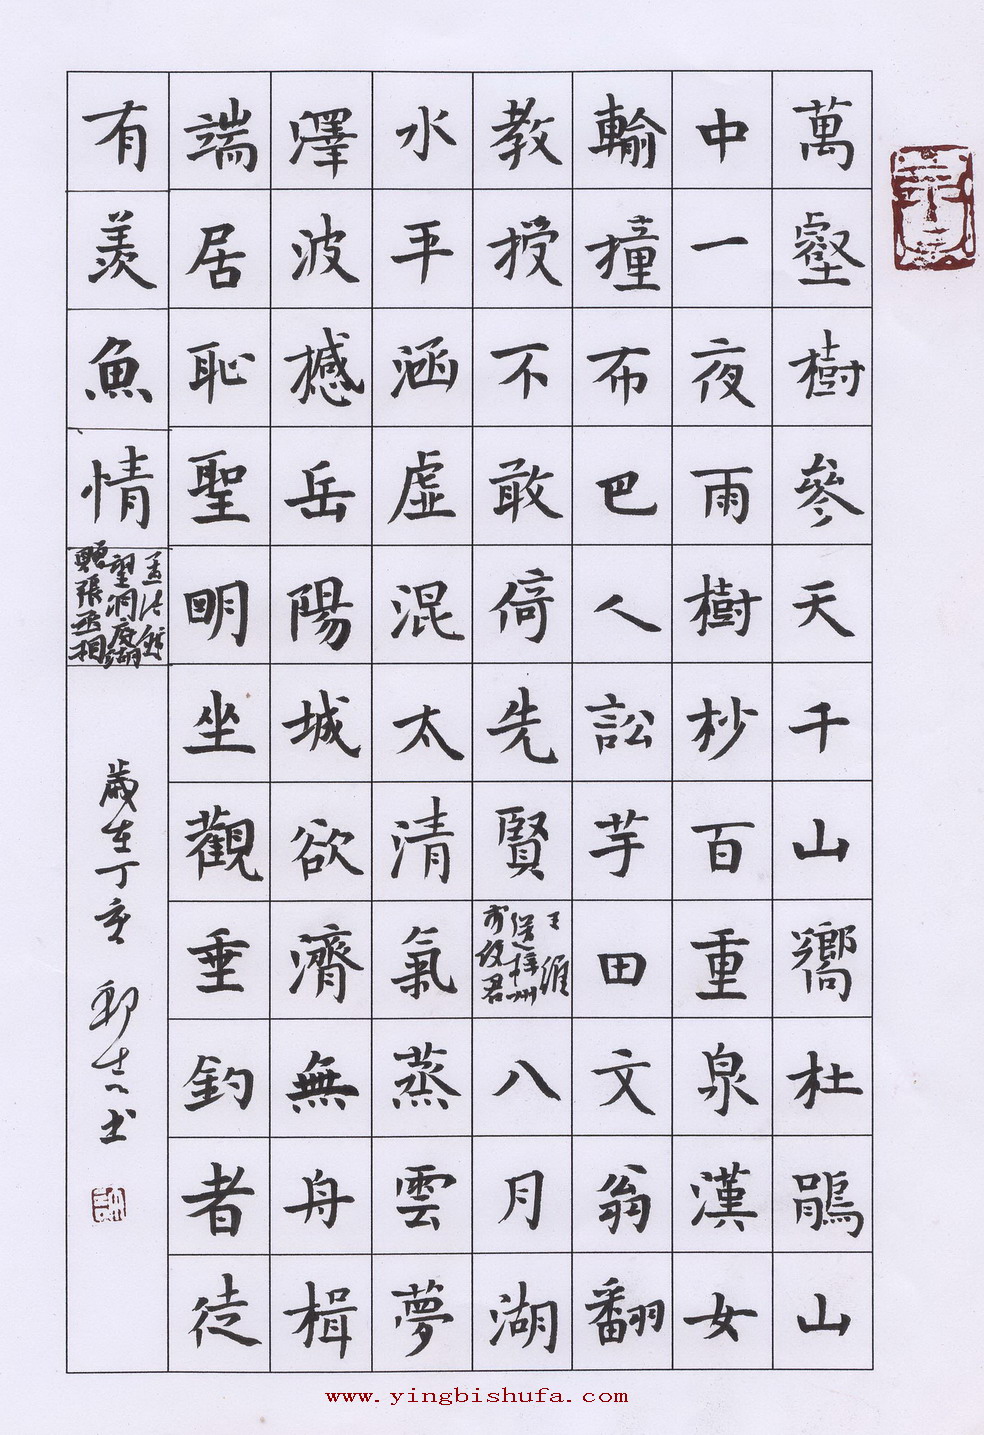 萬壑樹參天千山嚮杜鵑山
中一夜雨樹杪百重泉漢女
輸撞布巴人訟芋田文翁翻
教授不敢倚先賢
王維
送梓州
李使君
八月湖
水平涵虛混太清氣蒸雲夢
澤波撼岳陽城欲濟無舟楫
端居恥聖明坐觀垂釣者徒
有羨魚情
孟浩然
望洞庭湖
贈張丞相
歲在丁亥
www.yingbishufa.com